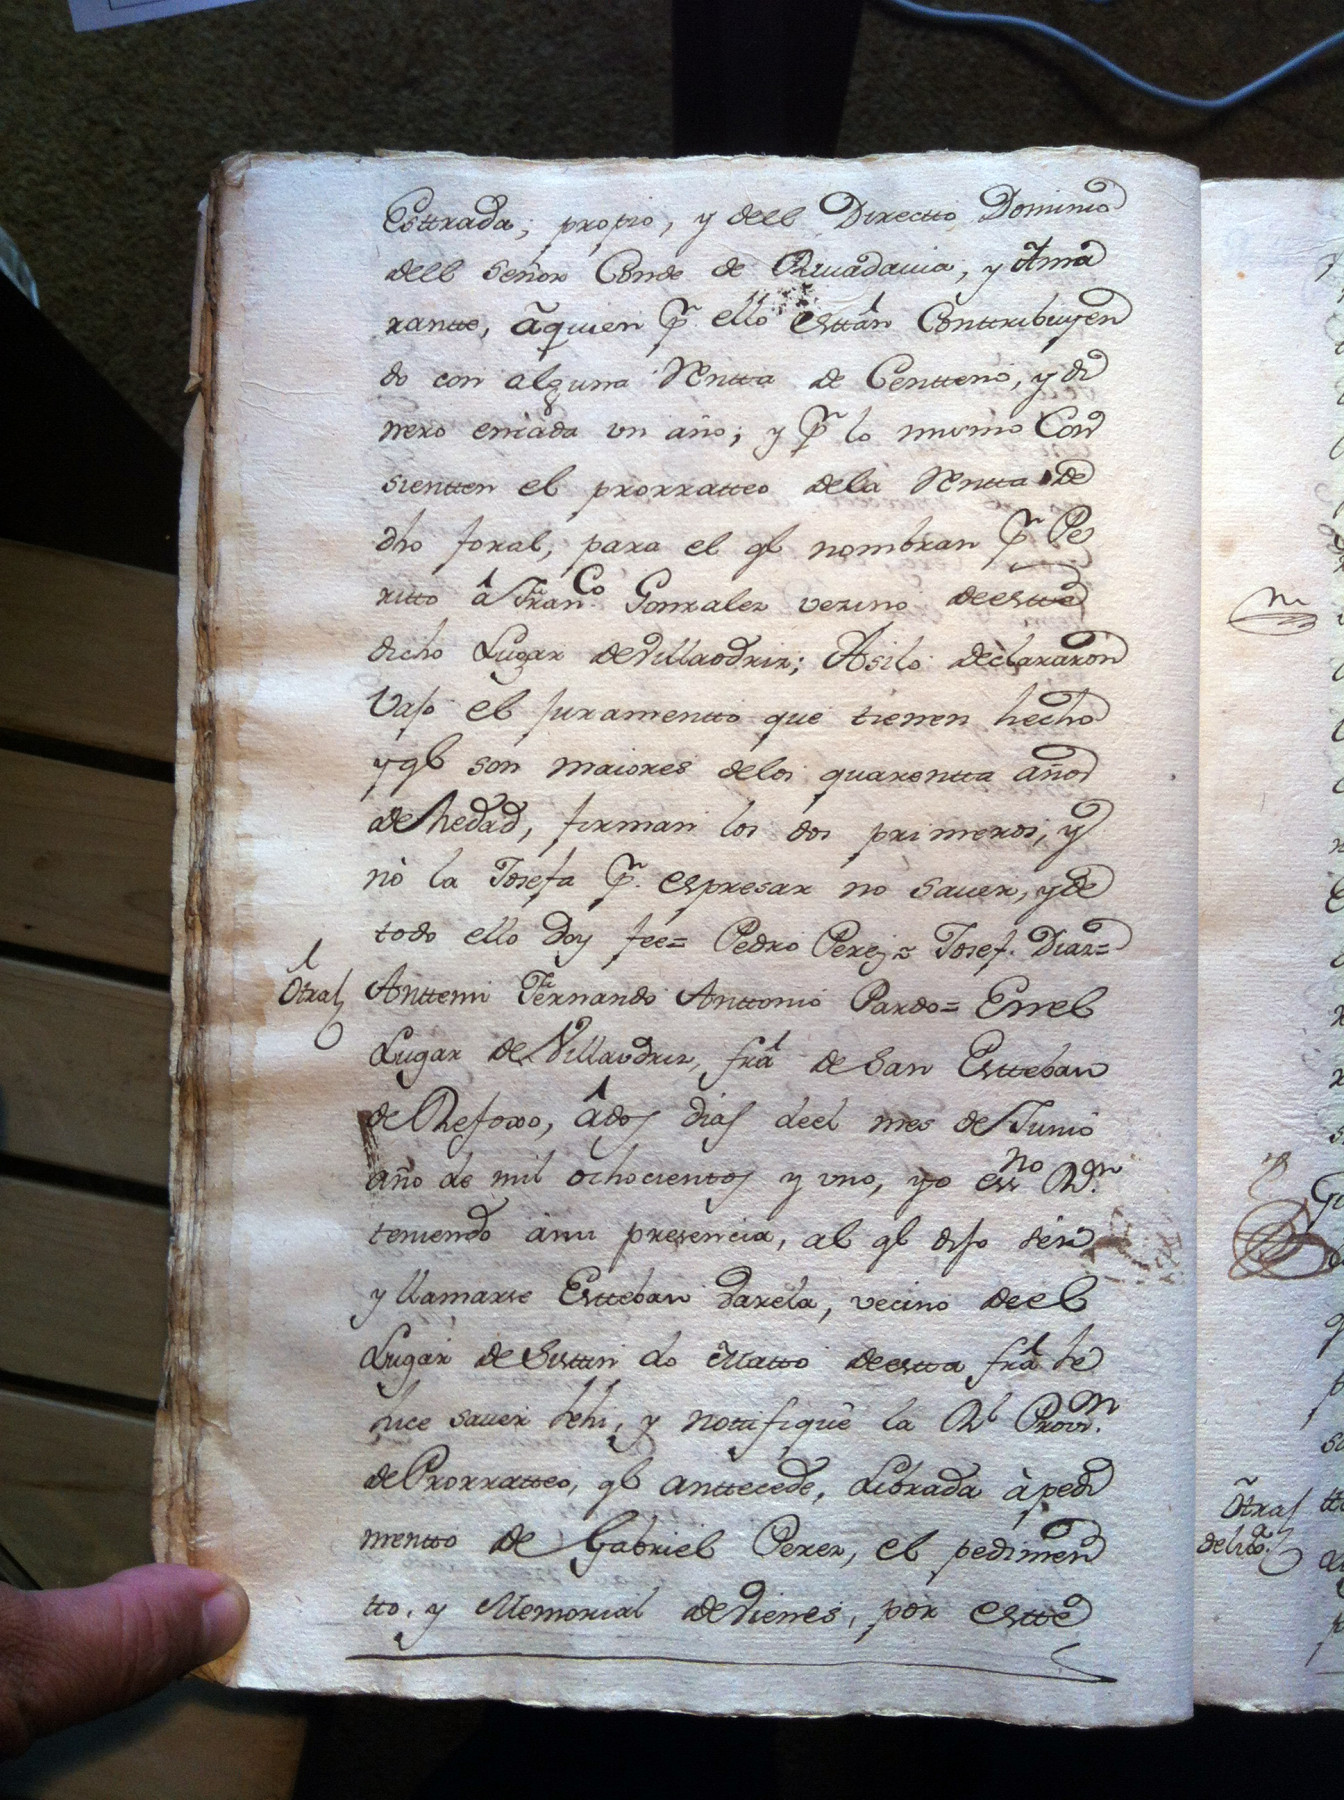 Esttrada; propio, y deel Directto Dominio
deel Señor Conde de Rivadavia, y Ama
rantte, âquien pr. ello esttàn Conttribuyen
do con alguna Rentta de Centteno, y di
nero encada un año; y pr. lo mismo Con
sientten el prorratteo dela Rentta de
dho foral, para el ql nombran pr. Pe
ritto â Franco. Gonzalez vezino de estte
dicho Lugar de Villaodriz; Asilo declararon
Vajo el Juramentto que tienen hecho
y ql son maiores delos quarentta años
de hedad, firman los dos primeros, y
nò la Josefa pr. espresar no saver, y de
todo ello doy fee= Pedro Perez= Josef. Diaz=
Otra Anttemi Fernando Anttonio Pardo= En el
Lugar de Villaodriz, frâ de San Estteban
de Refoxo, â dos dias deel mes de Junio
año de mil ochocientos y uno, yo essno Rn.
teniendo ámi presencia, al ql dijo sér
y llamarse Estteban Varela, vecino deel
Lugar de Sisttin do Matto de estta frâ le
hice saver lehi, y nottifiquè la Rl Provn.
de Prorratteo, ql anttecede, Librada à pedi
mentto de Gabriel Perez, el pedimen
tto, y Memorial de Vienes, por estte
Otra
de lizo.